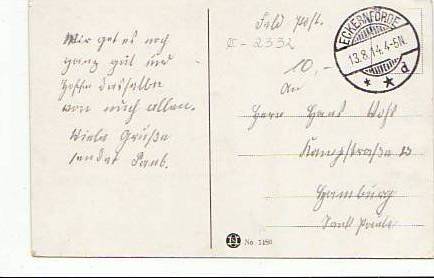 Wir get es noch
ganz gut und
hoffe dasselbe
von euch allen.
Viele Grüße
sendet Paul.
Feld post.
X-2332
10,-
ECKERNFÖRDE
13.8.14.4-5N.
* * d
An
Herrn Hans Voht
Kampstraße 13
Hamburg
Sankt Pauli
No. 1150